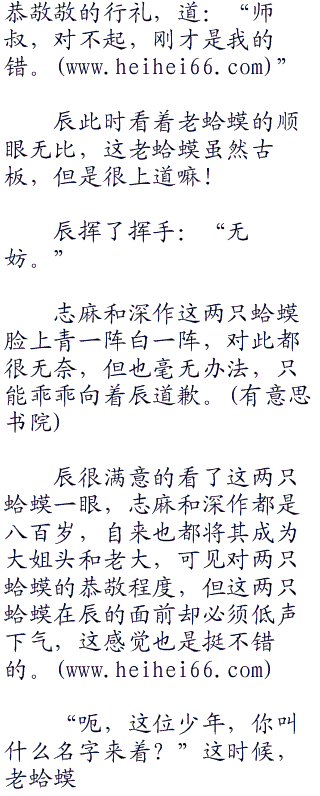 恭敬敬的行礼，道：“师
叔，对不起，刚才是我的
错。(www.heihei66.com)”
辰此时看着老蛤蟆的顺
眼无比，这老蛤蟆虽然古
板，但是很上道嘛！
辰挥了挥手：“无
妨。”
志麻和深作这两只蛤蟆
脸上青一阵白一阵，对此都
很无奈，但也毫无办法，只
能乖乖向着辰道歉。(有意思
书院)
辰很满意的看了这两只
蛤蟆一眼，志麻和深作都是
八百岁，自来也都将其成为
大姐头和老大，可见对两只
蛤蟆的恭敬程度，但这两只
蛤蟆在辰的面前却必须低声
下气，这感觉也是挺不错
的。(www.heihei66.com)
“呃，这位少年，你叫
什么名字来着？”这时候，
老蛤蟆